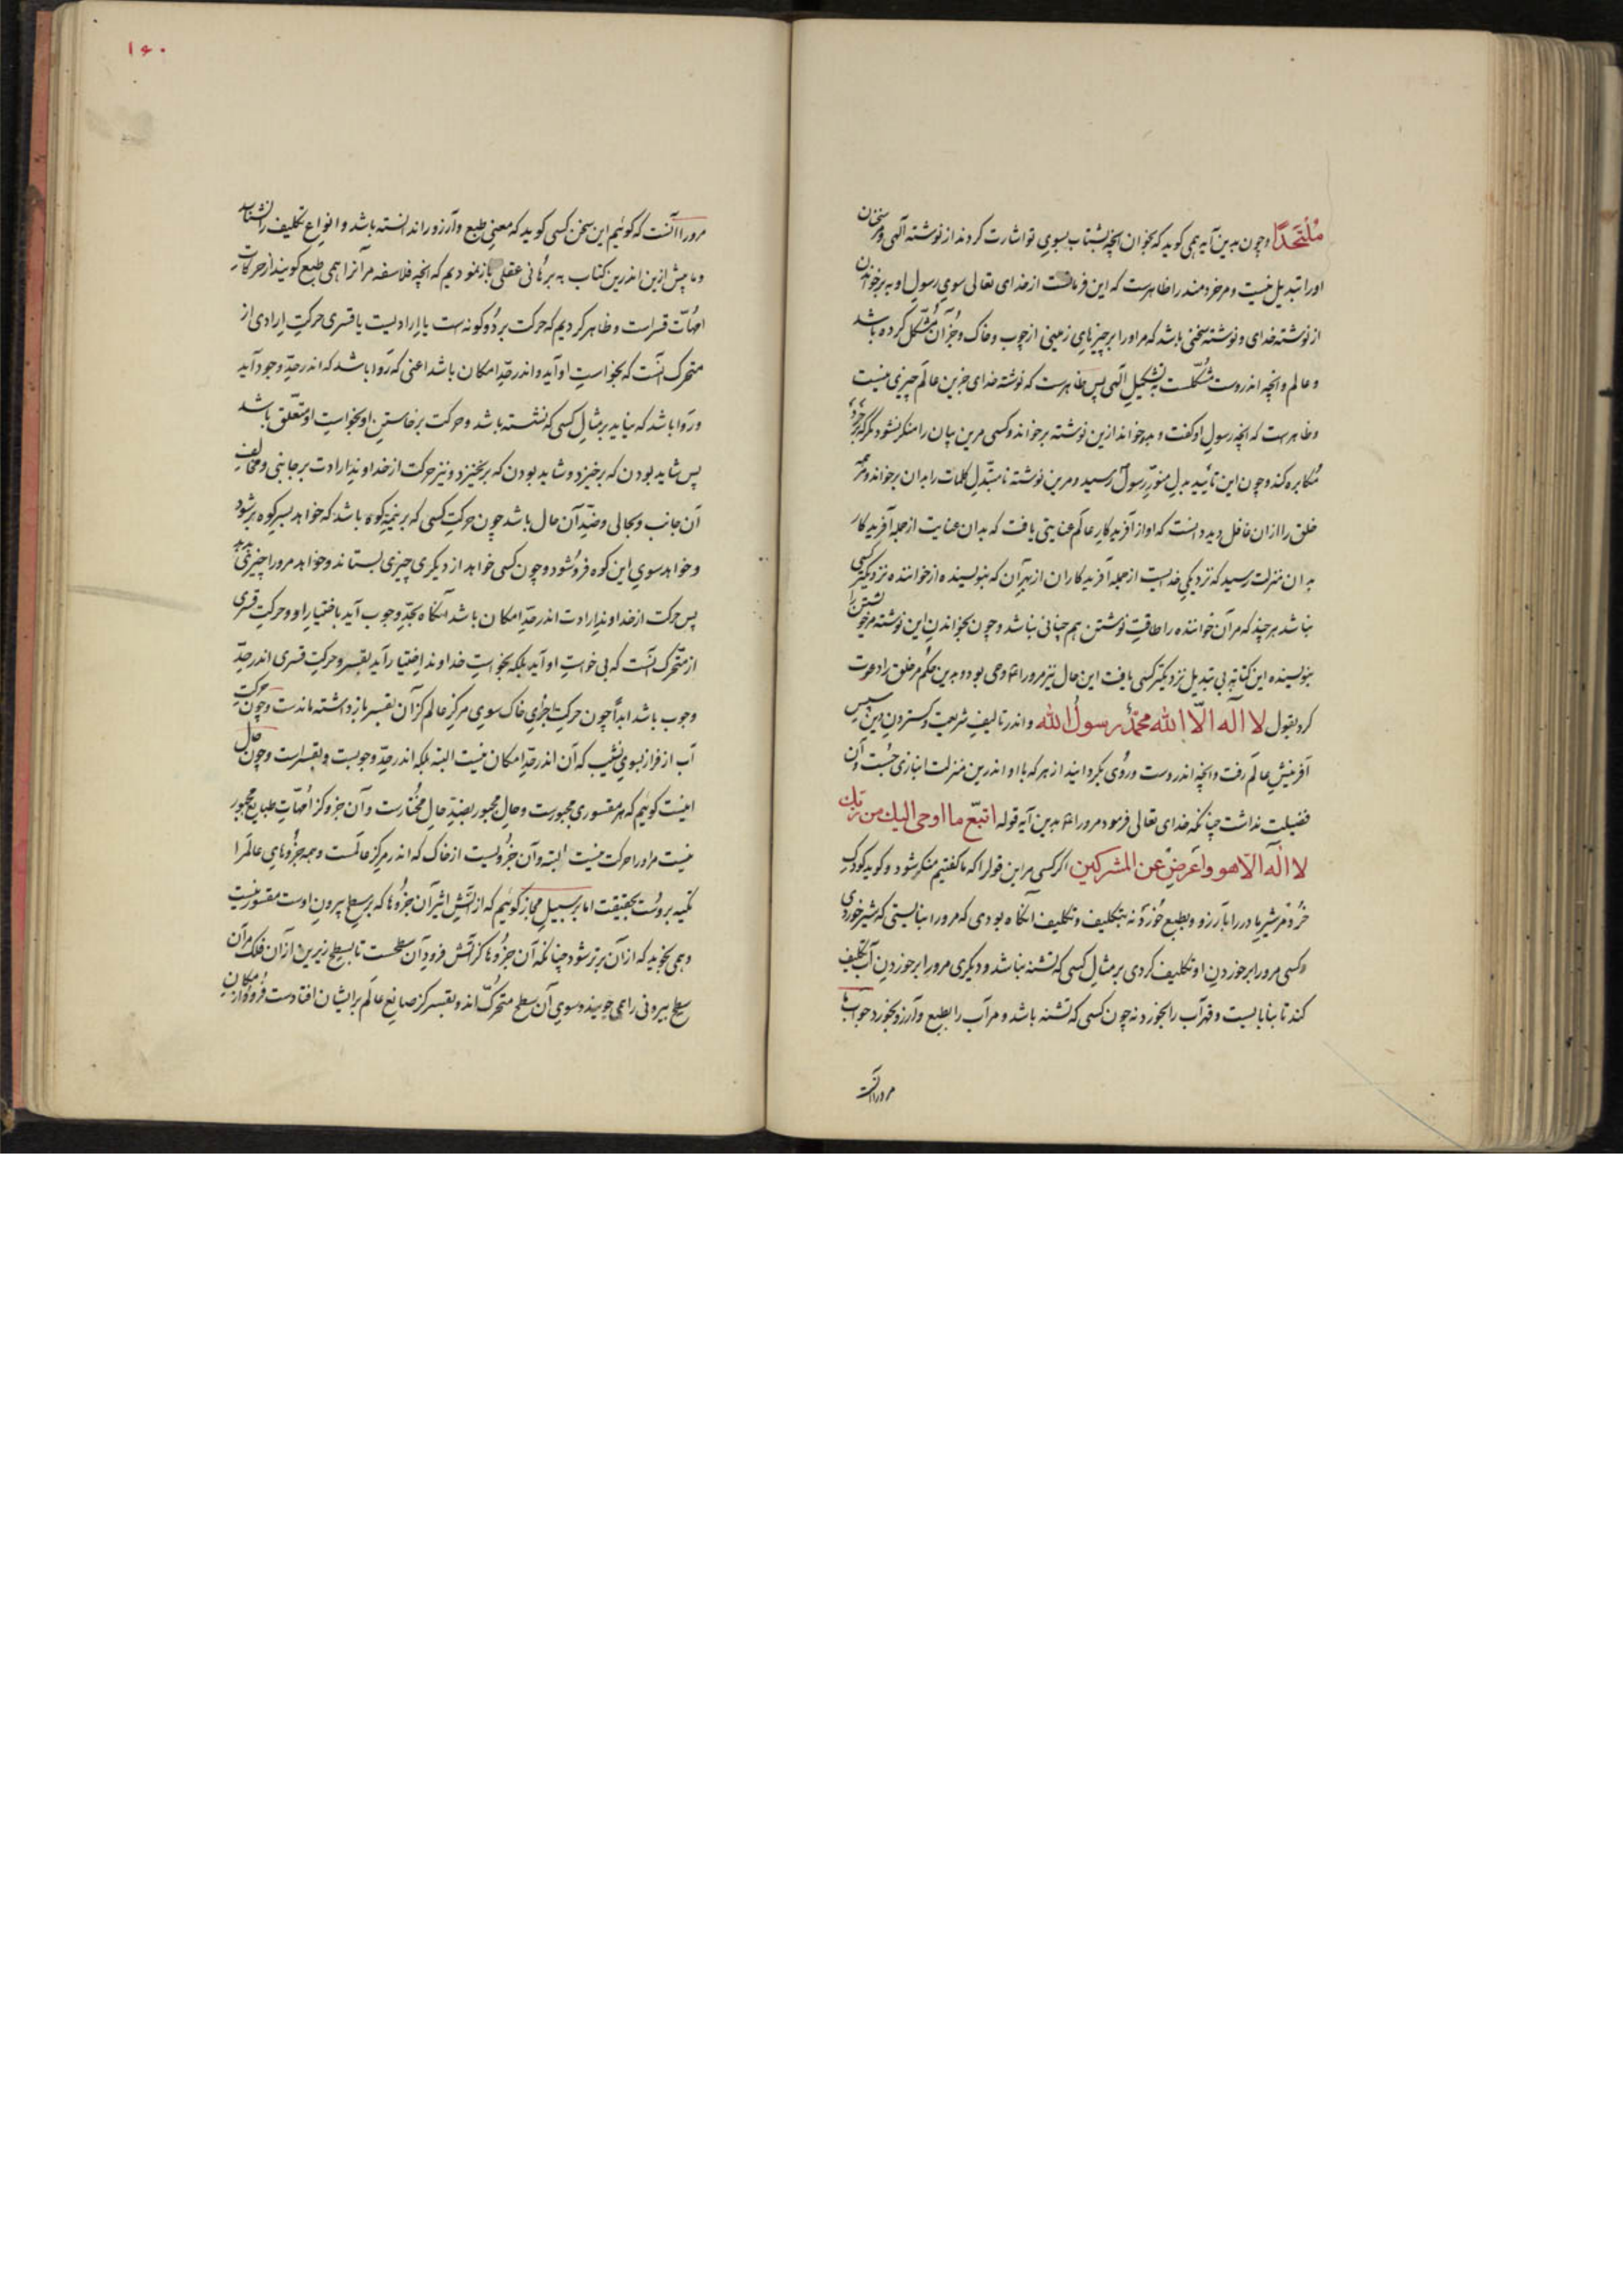 ملتحدًا و چون بدین آیه همی کوید که بخوان انچه بشتاب بسوی تو اشارت کردند از نوشته الهی و مر سخنان
اورا تبدیل نیست و مر خردمند را ظاهرست که این فرمانست از خدای تعالی سوی رسول او به برخواندن
از نوشته خدای و نوشته سخنی باشد که مر اورا بر چیزهای زمینی از چوب و خاک و جز آن مشکل کرده باشد
و عالم و انچه اندروست مشکلست به تشکیل الهی پس ظاهرست که نوشته خدای جزین عالم چیزی نیست
و ظاهرست که انچه رسول او کفت و بدو خواند ازین نوشته برخواند و کسی مرین بیان را منکر نشود مکر که بر خرد
مکابره کند و چون این تأیید بدل منوّر رسول رسید و مرین نوشته نامتبدّل کلمات را بدان برخواند و همه
خلق را ازان غافل دید دانست که او از آفریدکار عالم عنایتی یافت که بدان عنایت از جمله آفریدکار
بدان منزلت رسید که نزدیکی خدایست از جمله آفریدکاران از بهر آن که بنویسنده از خواننده نزدیکتر کسی
نباشد هر چند که مر آن خواننده را طاقت نوشتن هم چنانی نباشد و چون بخواندن این نوشته مر خویشتن را
بنویسنده این کتابه بی تبدیل نزدیکتر کسی یافت این حال نیز مرورا وحی بود و بدین حکم مر خلق را دعوت
کرد بقول لا اله الّا الله محمّد رسول الله و اندر تالیف شریعت و کستردن دین سپس
آفرینش عالم رفت و انچه اندروست و روی بکردانید از هر که با او اندرین منزلت انبازی جست و آن
فضیلت نداشت چنانکه خدای تعالی فرمود مرورا بدین آیه قوله اتبع ما اوحی الیك من ربك
لا اله الّا هو واعرض عن المشرکین اکر کسی مر این قول را که ما کفتیم منکر شود و کوید کودک
خرد مر شیر مادر را بآرزو و بطبع خورد نه بتکلیف و تکلیف انکاه بودی که مرورا نبایستی که شیر خوردی
و کسی مرورا بر خوردن او تکلیف کردی بر مثال کسی که تشنه نباشد و دیکری مرورا بر خوردن آب تکلیف
کند تا بنابایست و قهر آب را بخورد نه چون کسی که تشنه باشد و مر آب را بطبع و آرزو بخورد جواب ما
مرورا آنست
۱۶۰
مرورا آنست که کوئیم این سخن کسی کوید که معنی طبع و آرزو را ندانسته باشد و انواع تکلیف را نشناسد
و ما پیش ازین اندرین کتاب به برهانی عقلی باز نمودیم که انچه فلاسفه مر آنرا همی طبع کویند از حرکات
امهات قسراست و ظاهر کردیم که حرکت بر دو کونه ست یا ارادیست یا قسری حرکت ارادی از
متحرک انست که بخواست او آید و اندر حدّ امکان باشد اعنی که روا باشد که اندر حدّ وجود آید
و روا باشد که نیاید بر مثال کسی که نشسته باشد و حرکت برخاستن او بخواست او متعلق باشد
پس شاید بودن که برخیزد و شاید بودن که برنخیزد و نیز حرکت از خداوند ارادت بر جانبی و مخالف
آن جانب و بحالی و ضدّ آن حال باشد چون حرکت کسی که بر نیمه کوه باشد که خواهد بسر کوه برشود
و خواهد سوی این کوه فروشود و چون کسی خواهد از دیکری چیزی بستاند و خواهد مرورا چیزی بدهد
پس حرکت از خداوند ارادت اندر حدّ امکان باشد انکاه بحدّ وجوب آید باختیار او و حرکت قسری
از متحرک انست که بی خواست او آید بلکه بخواست خداوند اختیار آید بقسر و حرکت قسری اندر حدّ
وجوب باشد ابداً چون حرکت جزوی خاک سوی مرکز عالم کز آن بقسر باز داشته ماندست و چون حرکت
آب از فراز بسوی نشیب که آن اندر حدّ امکان نیست البته بلکه اندر حدّ وجوبست و بقسراست و چون حال
اینست کوئیم که هر مقسوری مجبورست و حال مجبور بضدّ حال مختارست و آن جزو کز امهات طبایع مجبور
نیست مر اورا حرکت نیست البته و آن جزویست از خاک که اندر مرکز عالمست و همه جزوهای عالم را
تکیه بروست بحقیقت اما بر سبیل مجاز کوئیم که از آتش اثیر آن جزوها که بر سطح بیرون اوست مقسور نیست
و همی بخوید که از آن برتر شود چنانکه آن جزوها کز آتش فرود آن سطحست تا بسطح زیرین از آن فلک مر آن
سطح بیرونی را همی جویند و سوی آن سطح متحرک اند و بقسر کز صانع عالم بر ایشان افتادست فرود از مکان